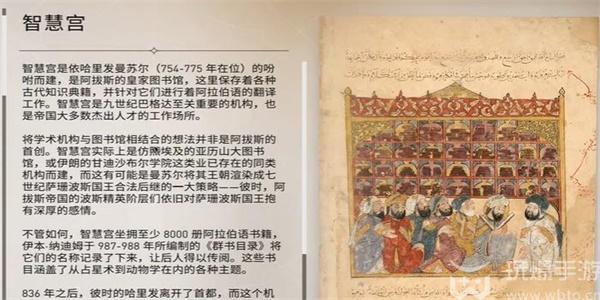 智慧宫
智慧宫是依哈里发曼苏尔（754-775 年在位）的吩
咐而建，是阿拔斯的皇家图书馆，这里保存着各种
古代知识典籍，并针对它们进行着阿拉伯语的翻译
工作。智慧宫是九世纪巴格达至关重要的机构，也
是帝国大多数杰出人才的工作场所。
将学术机构与图书馆相结合的想法并非是阿拔斯的
首创。智慧宫实际上是仿照埃及的亚历山大图书
馆，或伊朗的甘迪沙布尔学院这类业已存在的同类
机构而建，而这有可能是曼苏尔将其王朝渲染成七
世纪萨珊波斯国王合法后继的一大策略——彼时，阿
拔斯帝国的波斯精英阶层们依旧对萨珊波斯国王抱
有深厚的感情。
不管如何，智慧宫坐拥至少 8000 册阿拉伯语书籍，
伊本·纳迪姆于 987-988 年所编制的《群书目录》将
它们的名称记录了下来，让后人得以传阅。这些书
目涵盖了从占星术到动物学在内的各种主题。
836 年之后，彼时的哈里发离开了首都，而这个机
玩爆手游
www.wbto.cn